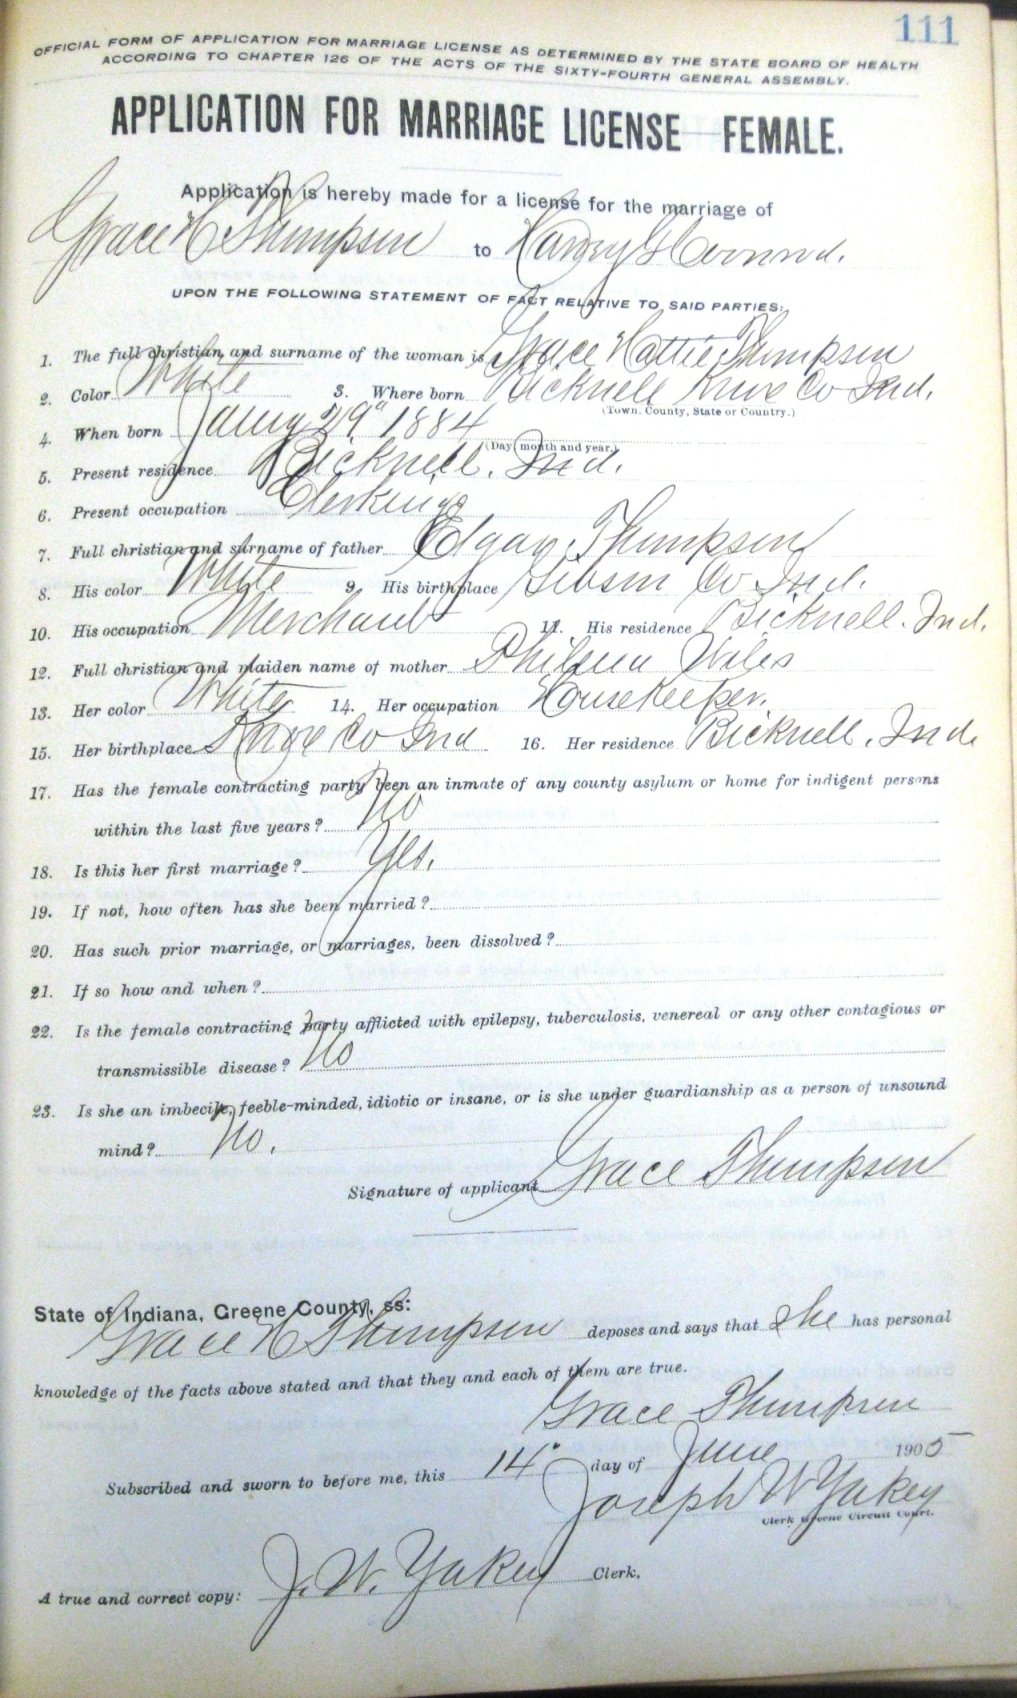 111
OFFICIAL FORM OF APPLICATION FOR MARRIAGE LICENSE AS DETERMINED BY THE STATE BOARD OF HEALTH
ACCORDING TO CHAPTER 126 OF THE ACTS OF THE SIXTY-FOURTH GENERAL ASSEMBLY.
APPLICATION FOR MARRIAGE LICENSE—FEMALE.
Application is hereby made for a license for the marriage of
Grace H Thompson to Harry G Coonrod.
UPON THE FOLLOWING STATEMENT OF FACT RELATIVE TO SAID PARTIES:
1. The full christian and surname of the woman is Grace Hattie Thompson
2. Color White 3. Where born Bicknell Knox Co Ind.
(Town, County, State or Country.)
4. When born Jany 29" 1884
(Day month and year.)
5. Present residence Bicknell. Ind.
6. Present occupation Clerking
7. Full christian and surname of father Edgar Thompson
8. His color White 9. His birthplace Gibson Co Ind.
10. His occupation Merchant 11. His residence Bicknell. Ind.
12. Full christian and maiden name of mother Philena Wiles
13. Her color White 14. Her occupation Housekeeper.
15. Her birthplace Knox Co Ind 16. Her residence Bicknell. Ind.
17. Has the female contracting party been an inmate of any county asylum or home for indigent persons
within the last five years? No
18. Is this her first marriage? Yes.
19. If not, how often has she been married?
20. Has such prior marriage, or marriages, been dissolved?
21. If so how and when?
22. Is the female contracting party afflicted with epilepsy, tuberculosis, venereal or any other contagious or
transmissible disease? No
23. Is she an imbecile, feeble-minded, idiotic or insane, or is she under guardianship as a person of unsound
mind? No.
Signature of applicant Grace Thompson
State of Indiana, Greene County, ss:
Grace H Thompson deposes and says that She has personal
knowledge of the facts above stated and that they and each of them are true.
Grace Thompson
Subscribed and sworn to before me, this 14" day of June 1905
Joseph W Yakey
Clerk Greene Circuit Court.
A true and correct copy: J. W. Yakey Clerk.